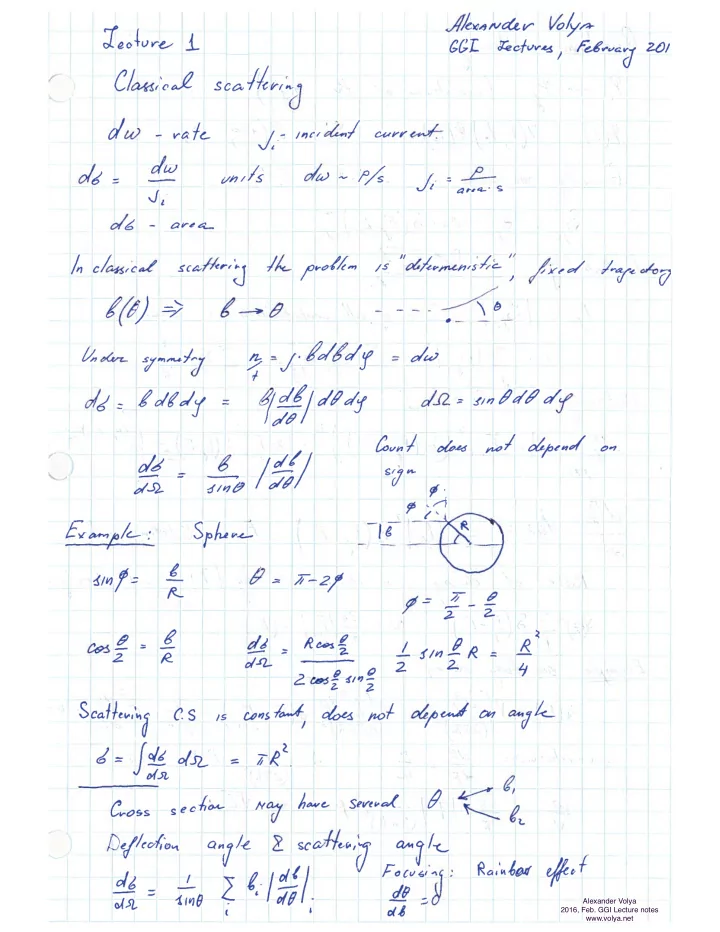 Lecture 1
Alexander Volya
GGI Lectures, February 201
Classical scattering
dw - rate    j_i - incident current
dσ = dw / j_i    units    dw ~ P/s    j_i = P / area·s
dσ - area
In classical scattering the problem is "determenistic", fixed tragectory
b(θ) ⇒ b → θ    θ
Under symmetry    n/t = j·b db dφ = dw
dσ = b db dφ = b |db/dθ| dθ dφ    dΩ = sinθ dθ dφ
Count does not depend on
sign
dσ/dΩ = b/sinθ |db/dθ|
Example: Sphere
φ φ b R
sin φ = b/R    θ = π - 2φ
φ = π/2 - θ/2
cos θ/2 = b/R    dσ/dΩ = R cos θ/2 / (2 cos θ/2 sin θ/2)    1/2 sin θ/2 R = R²/4
Scattering C.S is constant, does not depend on angle
σ = ∫ dσ/dΩ dΩ = πR²
Cross section may have several θ    b₁
b₂
Deflection angle & scattering angle
dσ/dΩ = 1/sinθ Σ_i b_i |db/dθ|_i
Focusing: Rainbow effect
dθ/db = 0
Alexander Volya
2016, Feb. GGI Lecture notes
www.volya.net